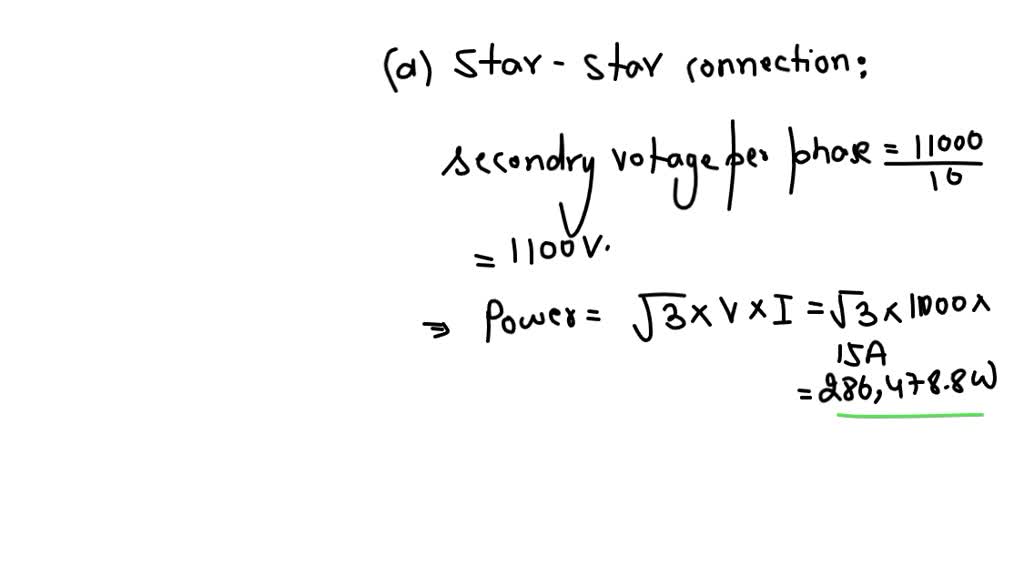 (a) Star - star connection:
secondry votage per phase = 11000
10
= 1100V.
⇒ Power = √3 × V × I = √3 × 11000 ×
15A
= 286,478.8W